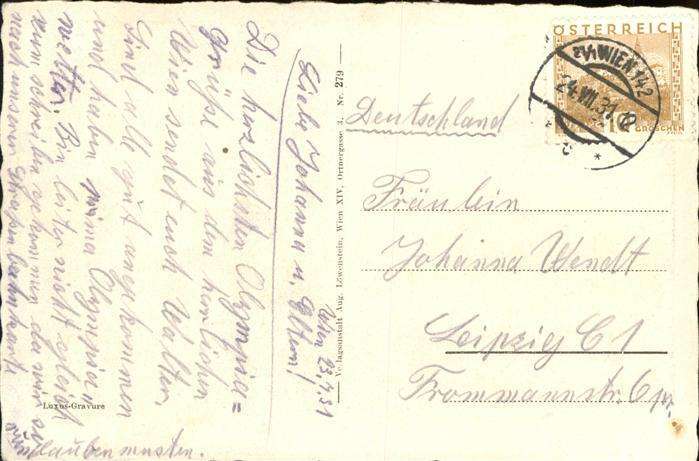 Wien 23.7.31
Liebe Johanna u. Eltern!
Die herzlichsten Olympia=
grüße aus dem herrlichen
Wien sendet euch Walter.
Sind alle gut angekommen
und haben prima „Olympia"
wetter. Bin leider nicht gleich
zum schreiben gekommen da wir ja
nach unseren
Luxus-Gravure
Verlagsanstalt Aug. Löwenstein, Wien XIV, Ortnergasse 3. Nr. 279
ÖSTERREICH
10
GROSCHEN
WIEN 142
24.VII.31
Deutschland
Fräulein
Johanna Wendt
Leipzig C 1
Frommannstr. 6